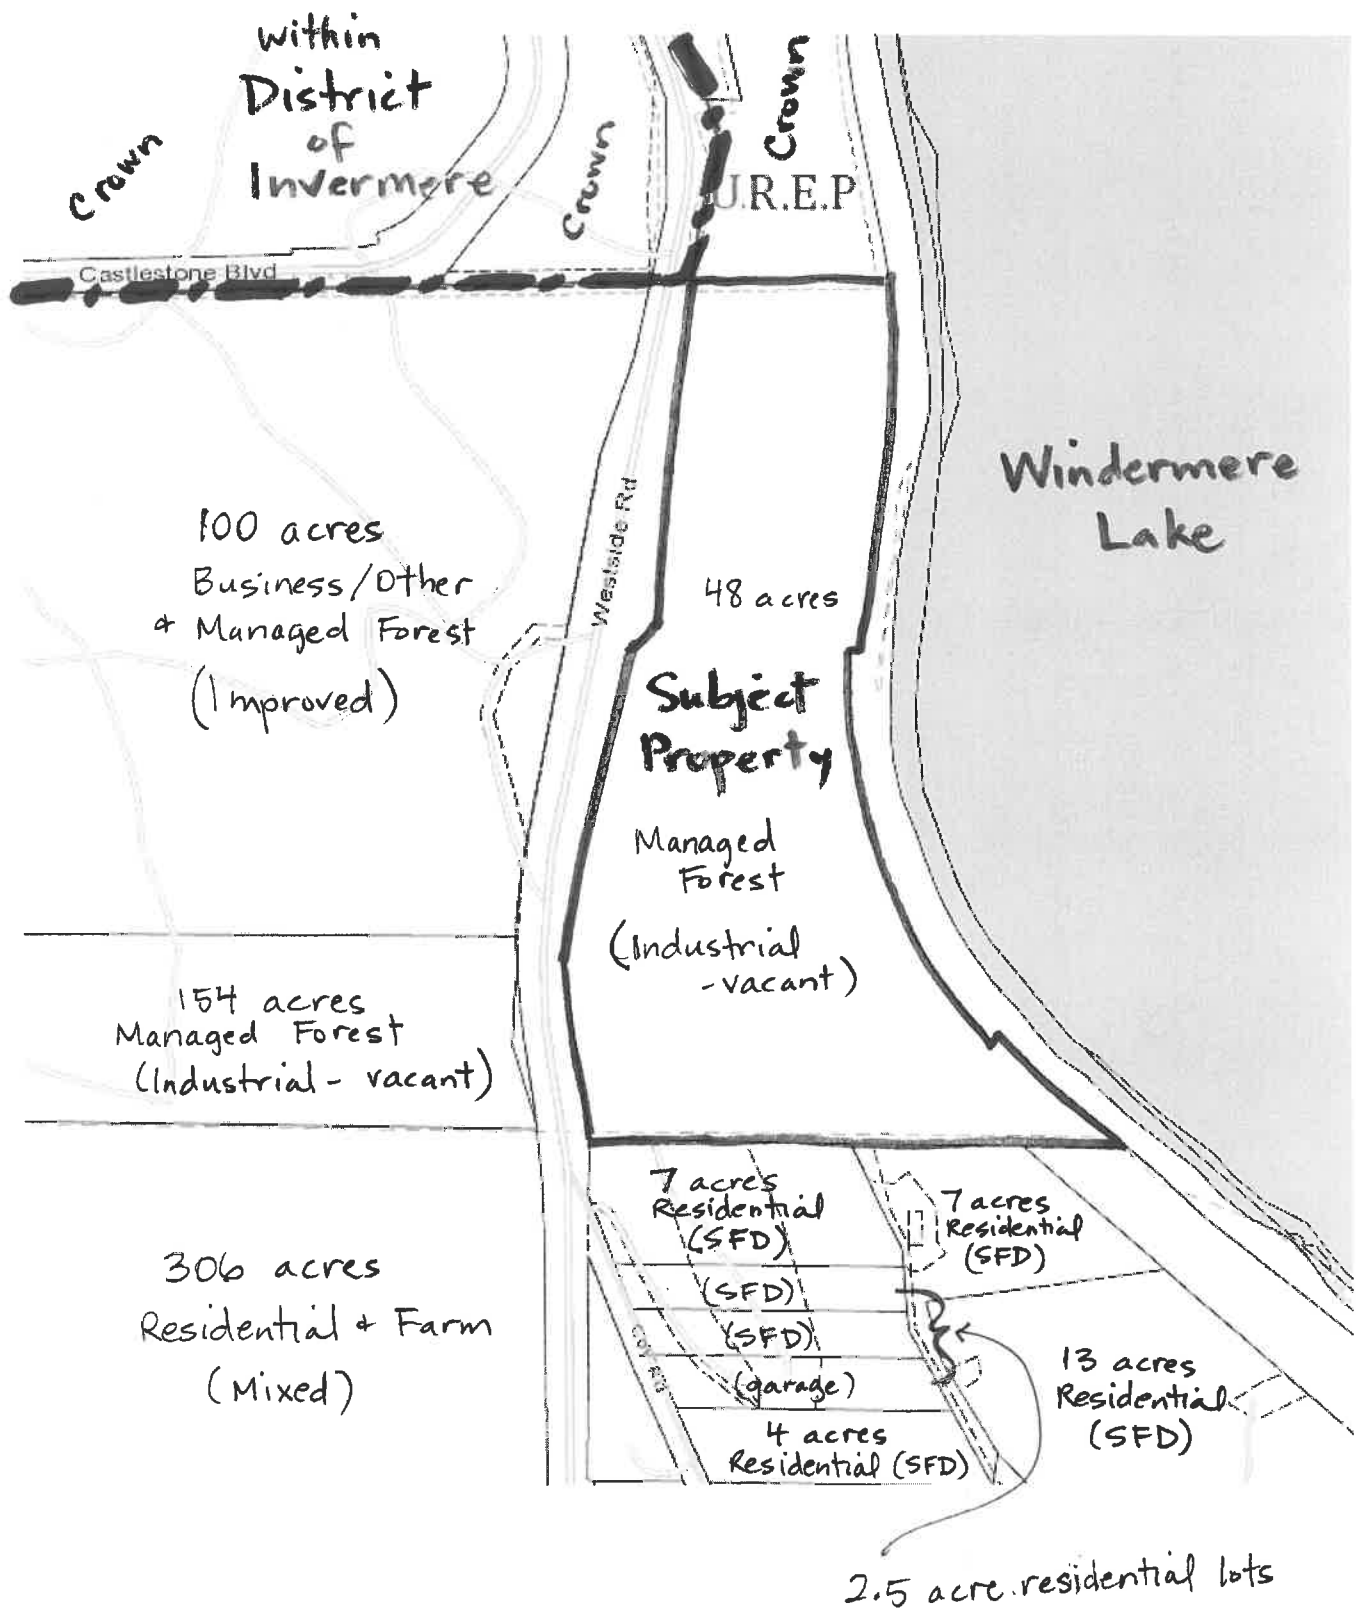 within
District
of
Invermere
Crown
Crown
Crown
U.R.E.P
Castlestone Blvd
Westside Rd
Windermere
Lake
100 acres
Business/Other
+ Managed Forest
(Improved)
48 acres
Subject
Property
Managed
Forest
(Industrial
-vacant)
154 acres
Managed Forest
(Industrial - vacant)
306 acres
Residential + Farm
(Mixed)
7 acres
Residential
(SFD)
7 acres
Residential
(SFD)
(SFD)
(SFD)
(garage)
4 acres
Residential (SFD)
13 acres
Residential
(SFD)
2.5 acre residential lots